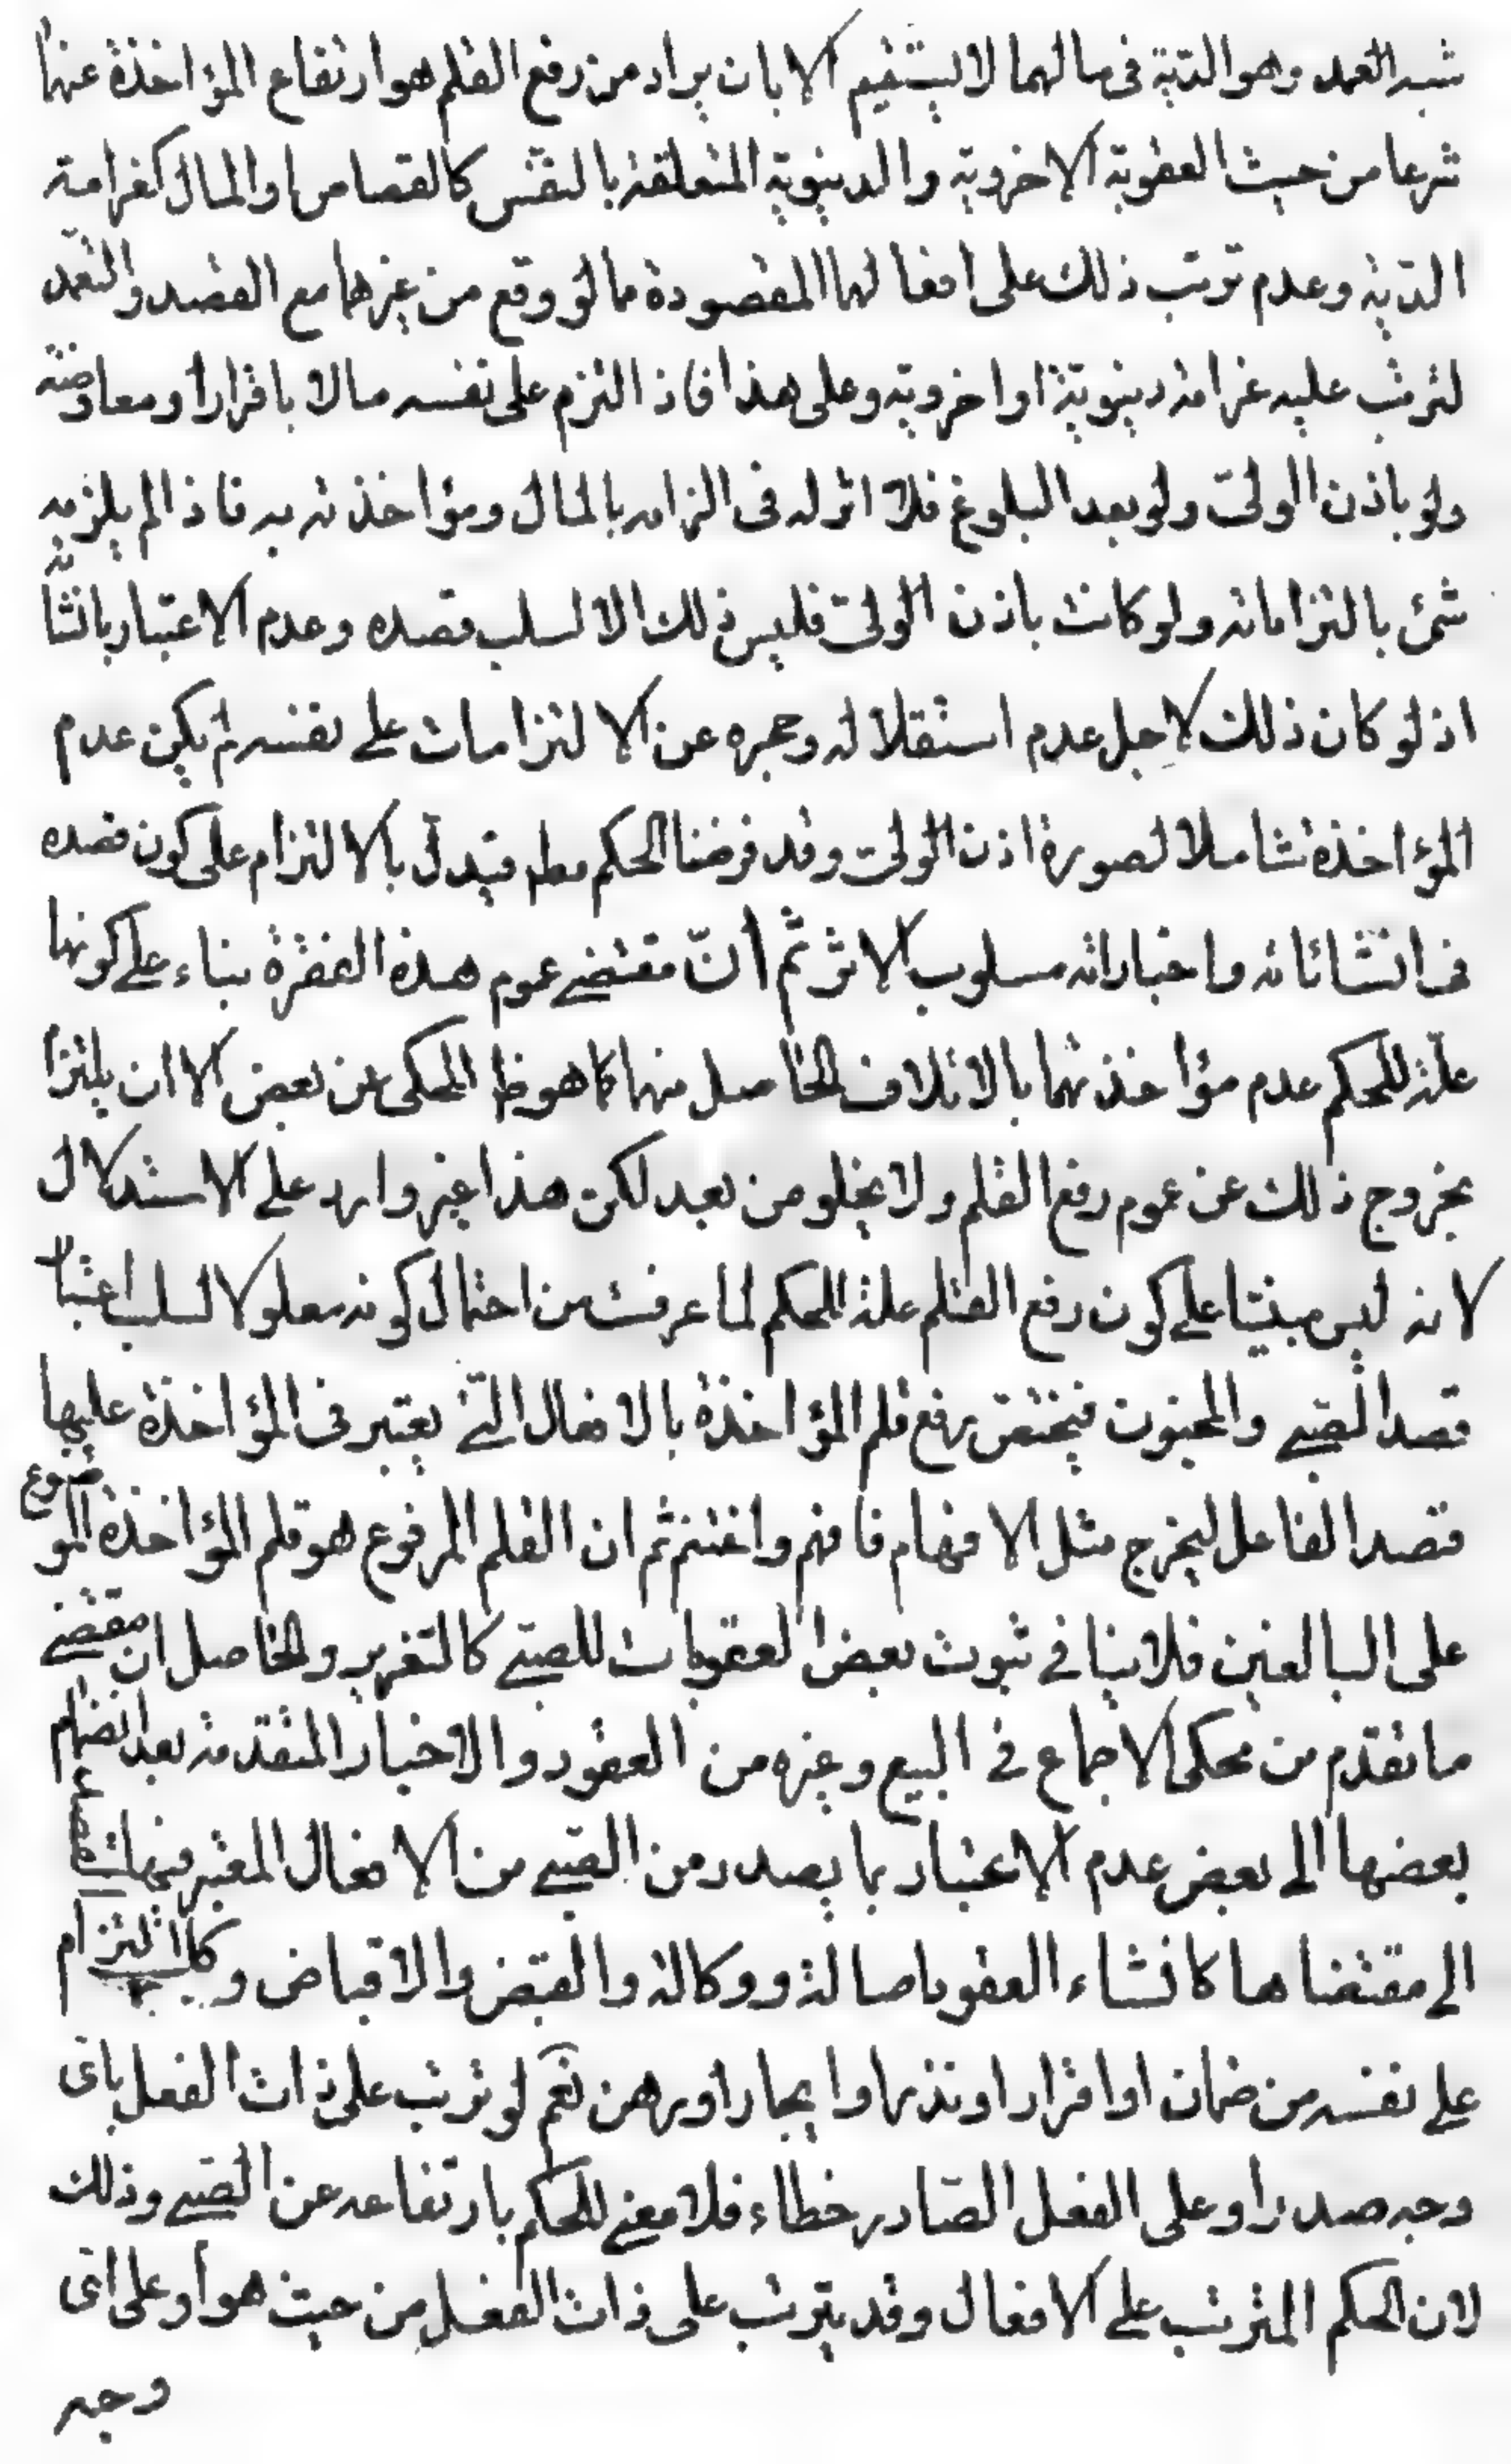 شبه العمد وهو الدّية فى مالهما لا يستقيم الا بان يراد من رفع القلم هو ارتفاع المؤاخذة عنهما
شرعا من حيث العقوبة الاخروية والدنيوية المتعلقة بالنفس كالقصاص او المال كغرامة
الدّية وعدم ترتب ذلك على افعالهما المقصودة مما لو وقع من غيرهما مع القصد والتعمّد
لترتب عليه غرامة دنيويّة او اخروية وعلى هذا فاذا التزم على نفسه مالا باقرار او معاوضة
ولو باذن الولىّ ولو بعد البلوغ فلا اثر له فى الزامه بالمال ومؤاخذته به فاذا لم يلزمه
شئ بالتزاماته ولو كانت باذن الولىّ فليس ذلك الا لسلب قصده وعدم الاعتبار بانشائه
اذ لو كان ذلك لاجل عدم استقلاله وحجره عن الالتزامات على نفسه لم يكن عدم
المؤاخذة شاملا لصورة اذن الولىّ وقد فرضنا الحكم مطلقا فيدلّ بالالتزام على كون قصده
فى انشائاته واخباراته مسلوب الاثر ثم انّ مقتضى عموم هذه الفقرة بناء على كونها
علّة للحكم عدم مؤاخذتهما بالاتلاف الحاصل منهما كما هو ظ المحكى عن بعض الا ان يلتزم
بخروج ذلك عن عموم رفع القلم ولا يخلو من بعد لكن هذا غير وارد على الاستدلال
لانه ليس مبنيّا على كون رفع القلم علة للحكم لما عرفت من احتمال كونه معلولا لسلب اعتبار
قصد الصّبى والمجنون فيختصّ رفع قلم المؤاخذة بالافعال التّى يعتبر فى المؤاخذة عليها
قصد الفاعل ليخرج مثل الافهام فافهم واغتنم ثم ان القلم المرفوع هو قلم المؤاخذة الموضوع
على البالغين فلا ينافى ثبوت بعض العقوبات للصّبى كالتعزير والحاصل ان مقتضى
ما تقدّم من محكى الاجماع فى البيع وغيره من العقود والاخبار المتقدمة بعد انضمام
بعضها الى بعض عدم الاعتبار بما يصدر من الصّبى من الافعال المعتبر فيها القصد
الى مقتضاها كانشاء العقود اصالة ووكالة والقبض والاقباض وكل التزام
على نفسه من ضمان او اقرار او نذر او ايجار او رهن نعم لو ترتب على ذات الفعل باى
وجه صدر او على الفعل الصّادر خطاء فلا معنى للحكم بارتفاعه عن الصّبى وذلك
لان الحكم المترتب على الافعال وقد يترتب على ذات الفعل من حيث هو او على اى
وجه